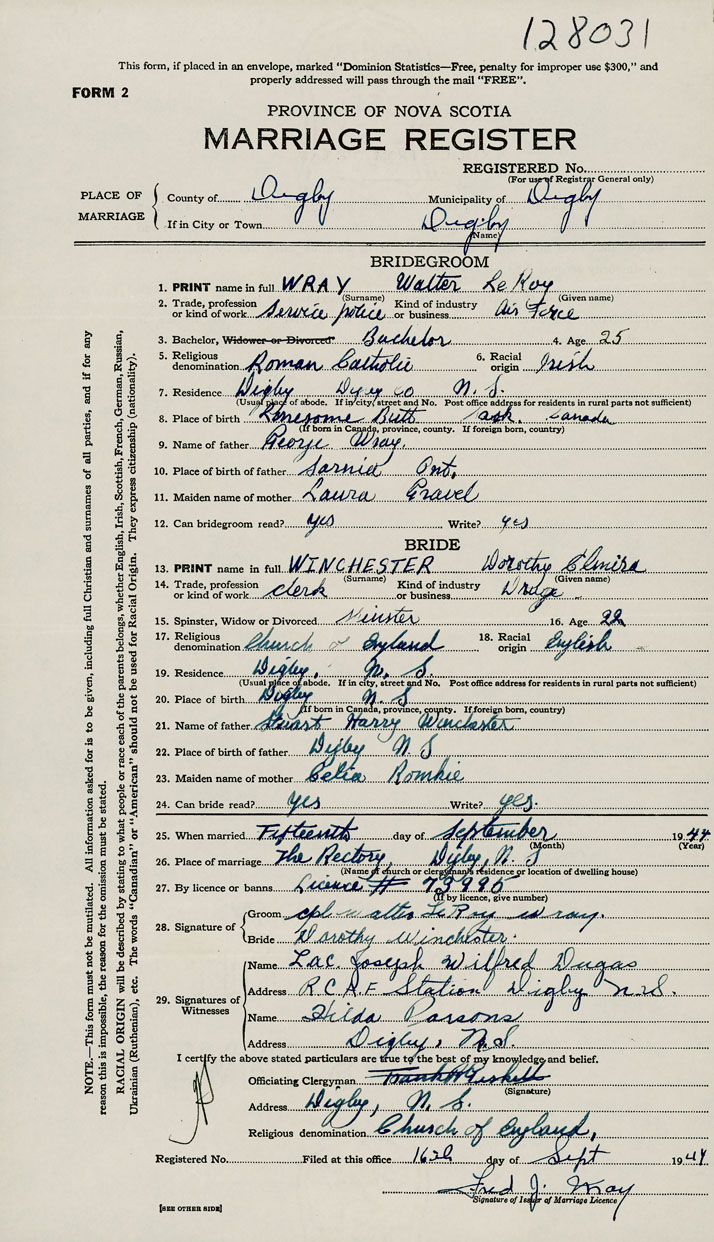 128031
This form, if placed in an envelope, marked "Dominion Statistics—Free, penalty for improper use $300," and
properly addressed will pass through the mail "FREE".
FORM 2
PROVINCE OF NOVA SCOTIA
MARRIAGE REGISTER
REGISTERED No.
(For use of Registrar General only)
PLACE OF MARRIAGE
County of Digby Municipality of Digby
If in City or Town Digby
(Name)
BRIDEGROOM
1. PRINT name in full WRAY Walter LeRoy
(Surname) (Given name)
2. Trade, profession or kind of work Service police Kind of industry or business Air Force
3. Bachelor, Widower or Divorced Bachelor 4. Age 25
5. Religious denomination Roman Catholic 6. Racial origin Irish
7. Residence Digby Digby Co N. S.
(Usual place of abode. If in city, street and No. Post office address for residents in rural parts not sufficient)
8. Place of birth Lonesome Butt Sask. Canada
(If born in Canada, province, county. If foreign born, country)
9. Name of father George Wray
10. Place of birth of father Sarnia Ont.
11. Maiden name of mother Laura Gravel
12. Can bridegroom read? yes Write? yes
BRIDE
13. PRINT name in full WINCHESTER Dorothy Elmira
(Surname) (Given name)
14. Trade, profession or kind of work clerk Kind of industry or business
15. Spinster, Widow or Divorced 16. Age 22
17. Religious denomination Church of England 18. Racial origin English
19. Residence Digby, N. S.
(Usual place of abode. If in city, street and No. Post office address for residents in rural parts not sufficient)
20. Place of birth Digby N. S
(If born in Canada, province, county. If foreign born, country)
21. Name of father Stuart Harry Winchester
22. Place of birth of father Digby N. S
23. Maiden name of mother Celia Romkie
24. Can bride read? yes Write? yes.
25. When married Fifteenth day of September 1944
(Month) (Year)
26. Place of marriage The Rectory, Digby, N. S
(Name of church or clergyman's residence or location of dwelling house)
27. By licence or banns Licence # 73995
(If by licence, give number)
28. Signature of
Groom cpl. Walter LeRoy Wray.
Bride Dorothy Winchester.
29. Signatures of Witnesses
Name Lac Joseph Wilfred Dugas
Address R.C.A.F Station Digby N.S.
Name Hilda Parsons
Address Digby, N.S.
I certify the above stated particulars are true to the best of my knowledge and belief.
Officiating Clergyman
(Signature)
Address Digby, N. S.
Religious denomination Church of England,
Registered No. Filed at this office day of Sept 1944
Fred J. Wray
Signature of Issuer of Marriage Licence
[SEE OTHER SIDE]
NOTE.—This form must not be mutilated. All information asked for is to be given, including full Christian and surnames of all parties, and if for any
reason this is impossible, the reason for the omission must be stated.
RACIAL ORIGIN will be described by stating to what people or race each of the parents belongs, whether English, Irish, Scottish, French, German, Russian,
Ukrainian (Ruthenian), etc. The words "Canadian" or "American" should not be used for Racial Origin. They express citizenship (nationality).